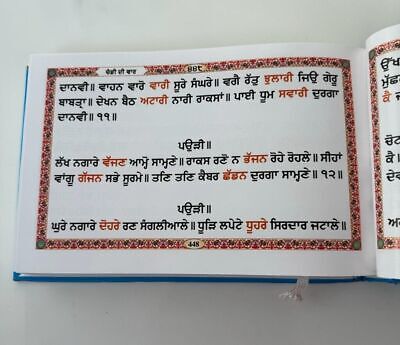 ਚੰਡੀ ਦੀ ਵਾਰ
੪੪੮
ਦਾਨਵੀ॥ ਵਾਹਨ ਵਾਰੋ ਵਾਰੀ ਸੂਰੇ ਸੰਘਰੇ॥ ਵਗੈ ਰੱਤੁ ਝੁਲਾਰੀ ਜਿਉ ਗੇਰੂ
ਬਾਬਤ੍ਰਾ॥ ਦੇਖਨ ਬੈਠ ਅਟਾਰੀ ਨਾਰੀ ਰਾਕਸਾਂ॥ ਪਾਈ ਧੂਮ ਸਵਾਰੀ ਦੁਰਗਾ
ਦਾਨਵੀ॥੧੧॥
ਪਉੜੀ॥
ਲੱਖ ਨਗਾਰੇ ਵੱਜਣ ਆਮ੍ਹੋ ਸਾਮ੍ਹਣੇ॥ ਰਾਕਸ ਰਣੋ ਨ ਭੱਜਨ ਰੋਹੇ ਰੋਹਲੇ॥ ਸੀਹਾਂ
ਵਾਂਗੂ ਗੱਜਨ ਸਭੇ ਸੂਰਮੇ॥ ਤਣਿ ਤਣਿ ਕੈਬਰ ਛੱਡਨ ਦੁਰਗਾ ਸਾਮ੍ਹਣੇ॥੧੨॥
ਪਉੜੀ॥
ਘੁਰੇ ਨਗਾਰੇ ਦੋਹਰੇ ਰਣ ਸੰਗਲੀਆਲੇ॥ ਧੂੜਿ ਲਪੇਟੇ ਧੂਹਰੇ ਸਿਰਦਾਰ ਜਟਾਲੇ॥
448